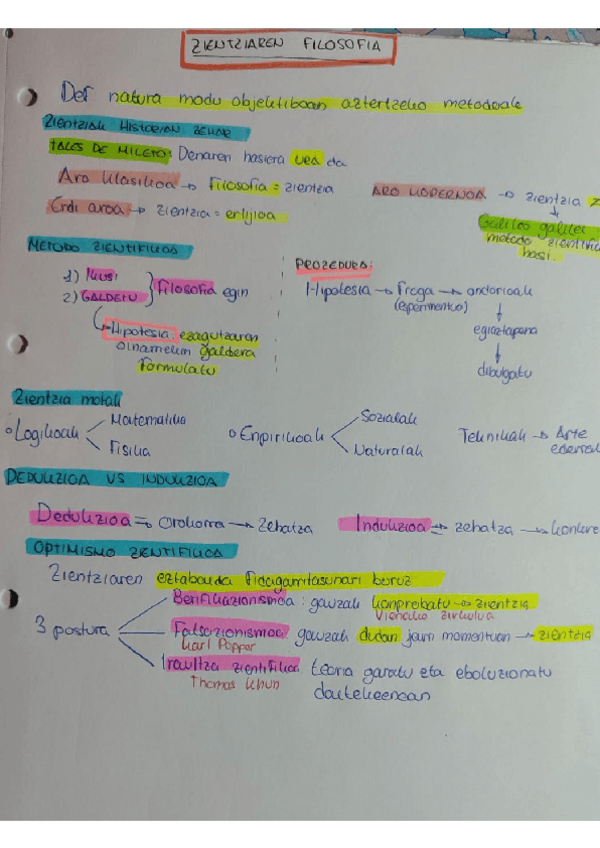 ZIENTZIAREN FILOSOFIA
Def natura modu objektiboan aztertzeko metodoak
Zientziak Historian zehar
TALES DE MILETO: Denaren hasiera ura da
Aro klasikoa → Filosofia = zientzia
ARO MODERNOA → zientzia
Erdi aroa → zientzia = erlijioa
Galileo galilei
metodo zientifiko
hasi.
METODO ZIENTIFIKOA
PROZEDURA:
1) IKUSI
2) GALDETU
Filosofia egin
Hipotesia: ezagutzaren
oinarriekin galdera
formulatu
Hipotesia → Froga → ondorioak
(esperimentua)
egiaztapena
dibulgatu
Zientzia motak
Logikoak
Matematika
Fisika
Enpirikoak
Sozialak
Naturalak
Teknikak → Arte
ederrak
DEDUKZIOA VS INDUKZIOA
Dedukzioa => Orokorra → Zehatza
Indukzioa => zehatza → konkre
OPTIMISMO ZIENTIFIKOA
Zientziaren eztabaida fidagarritasunari buruz
3 postura
Berifikazionismoa: gauzak konprobatu → zientzia
Vienako zirkulua
Falsazionismoa: gauzak dudan jarri momentuan → zientzia
Karl Popper
Iraultza zientifikoa: teoria garatu eta eboluzionatu
Thomas Khun
daitekeenean